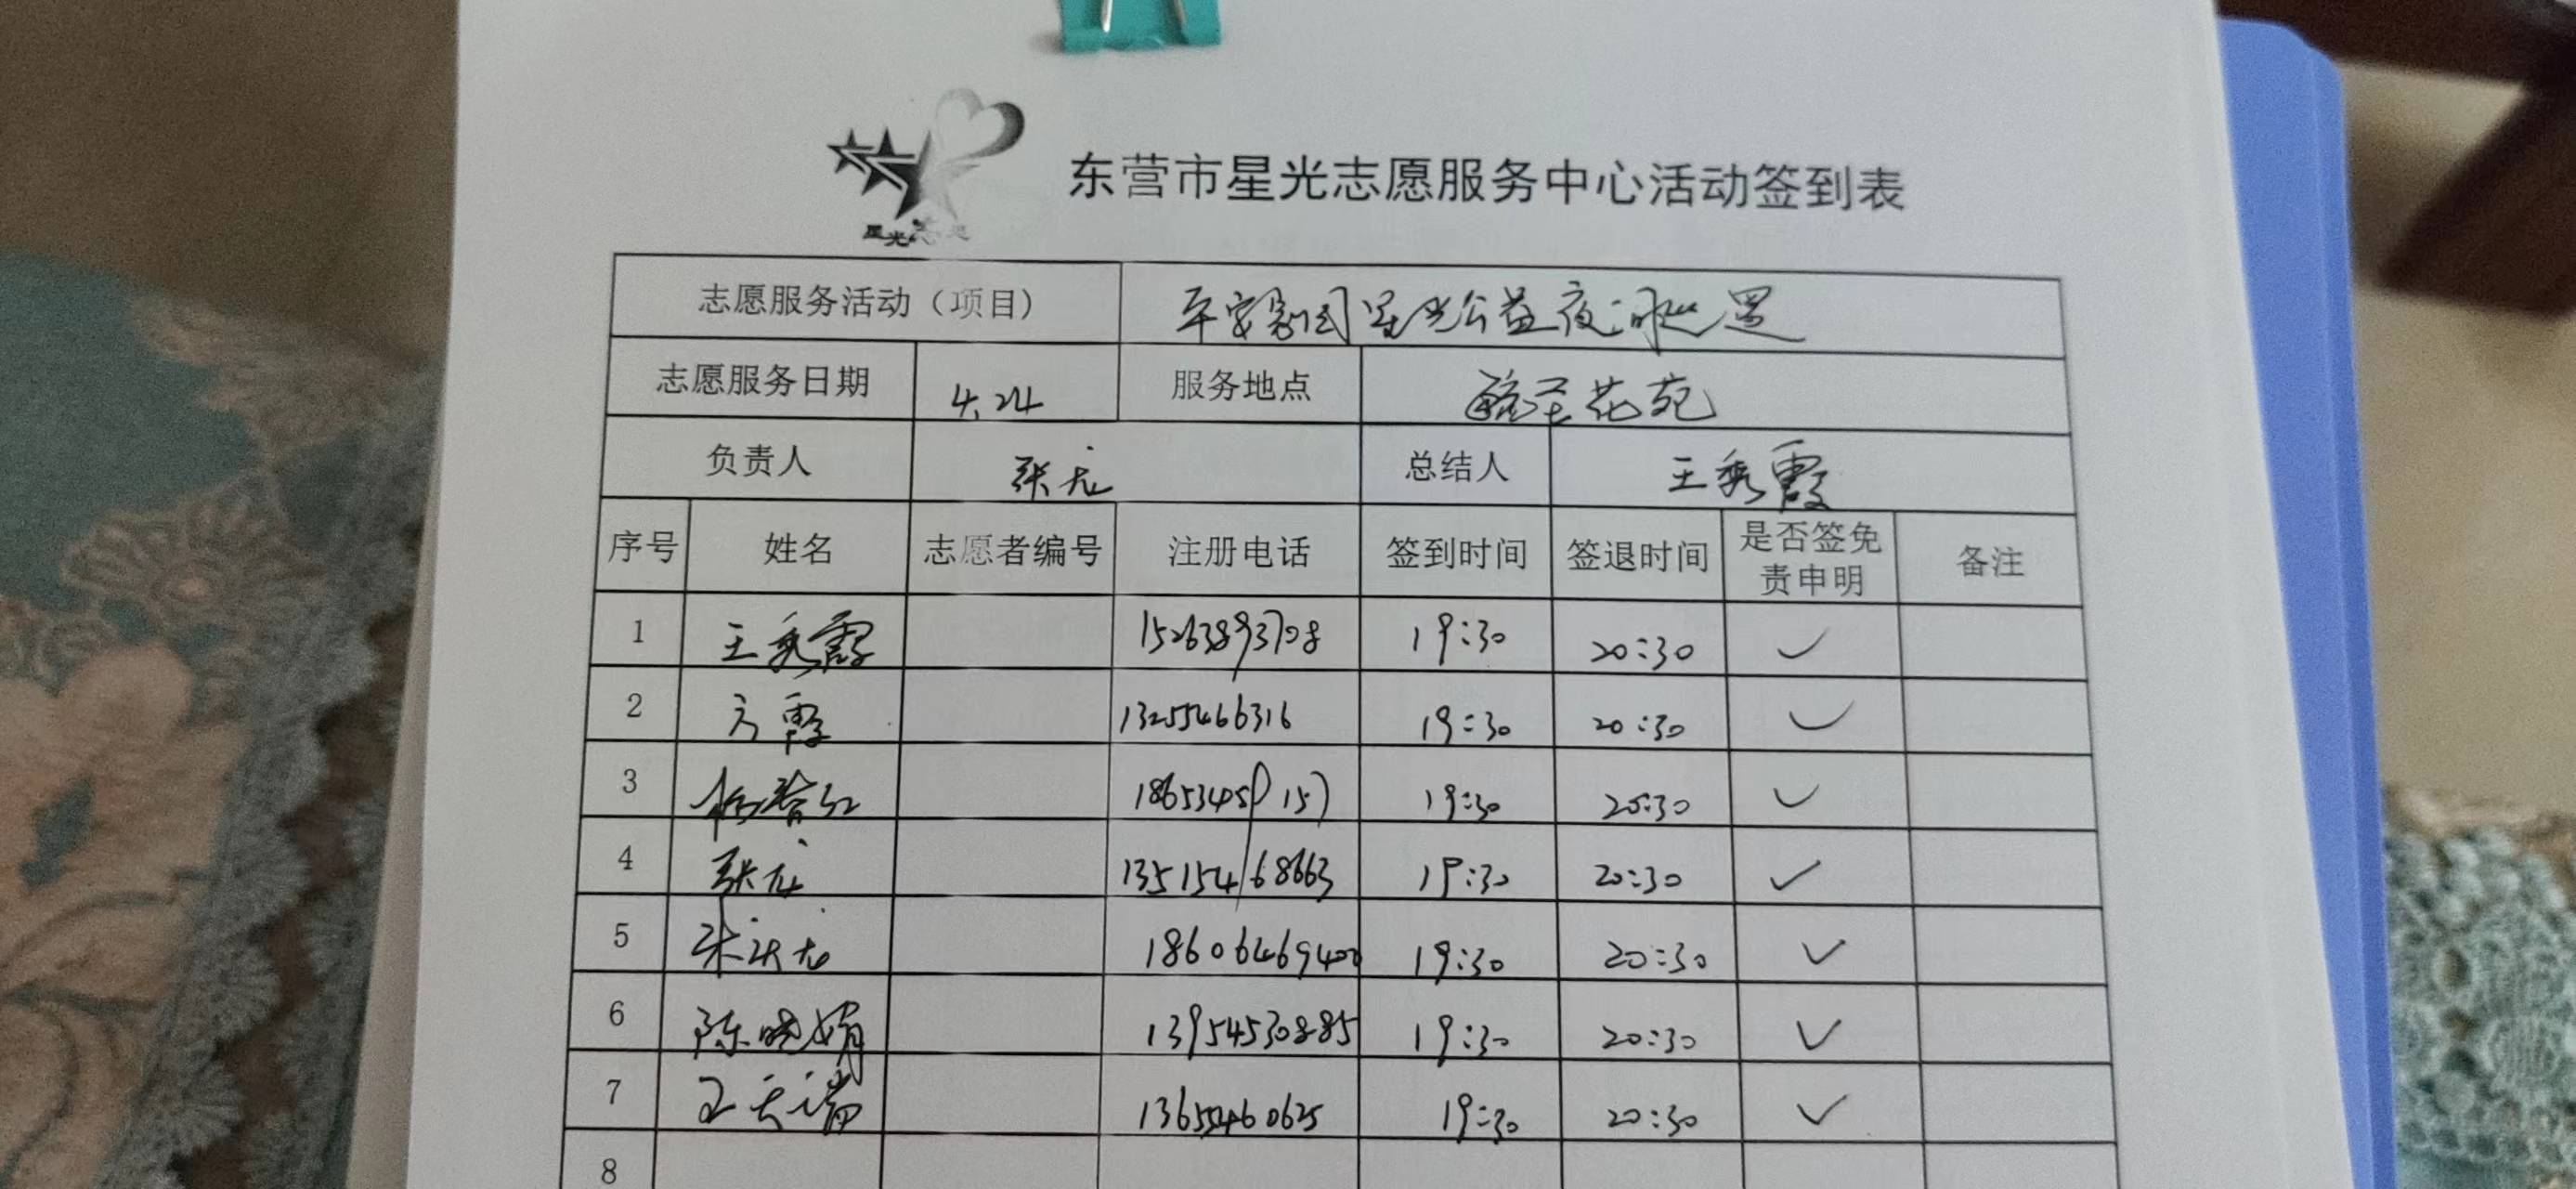 东营市星光志愿服务中心活动签到表
星光志愿
志愿服务活动（项目） 平安家园星光公益夜间巡逻
志愿服务日期 4.24 服务地点 花苑
负责人 张龙 总结人 王秀霞
序号 姓名 志愿者编号 注册电话 签到时间 签退时间 是否签免责申明 备注
1 王秀霞 15263893708 19:30 20:30 ✓
2 方霞 13255466316 19:30 20:30 ✓
3 19:30 20:30 ✓
4 张龙 13515468663 19:30 20:30 ✓
5 18606469400 19:30 20:30 ✓
6 陈晓娟 13954530885 19:30 20:30 ✓
7 王天瑞 13655460625 19:30 20:30 ✓
8